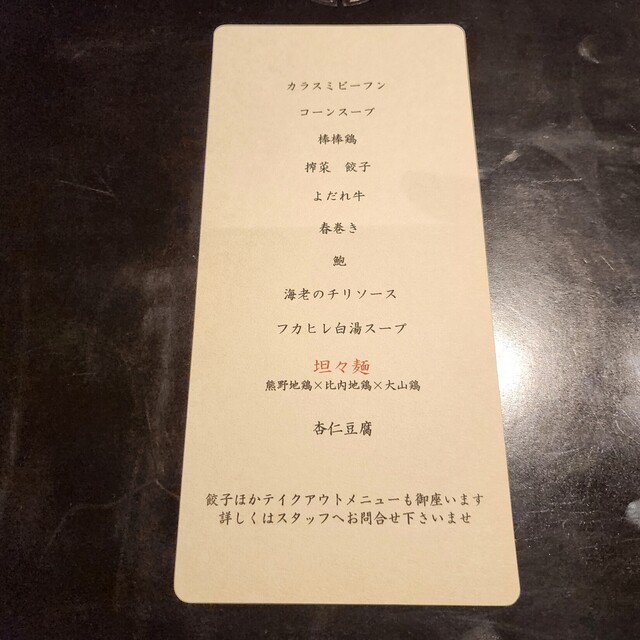 カラスミビーフン
コーンスープ
棒棒鶏
搾菜　餃子
よだれ牛
春巻き
鮑
海老のチリソース
フカヒレ白湯スープ
坦々麺
熊野地鶏×比内地鶏×大山鶏
杏仁豆腐
餃子ほかテイクアウトメニューも御座います
詳しくはスタッフへお問合せ下さいませ